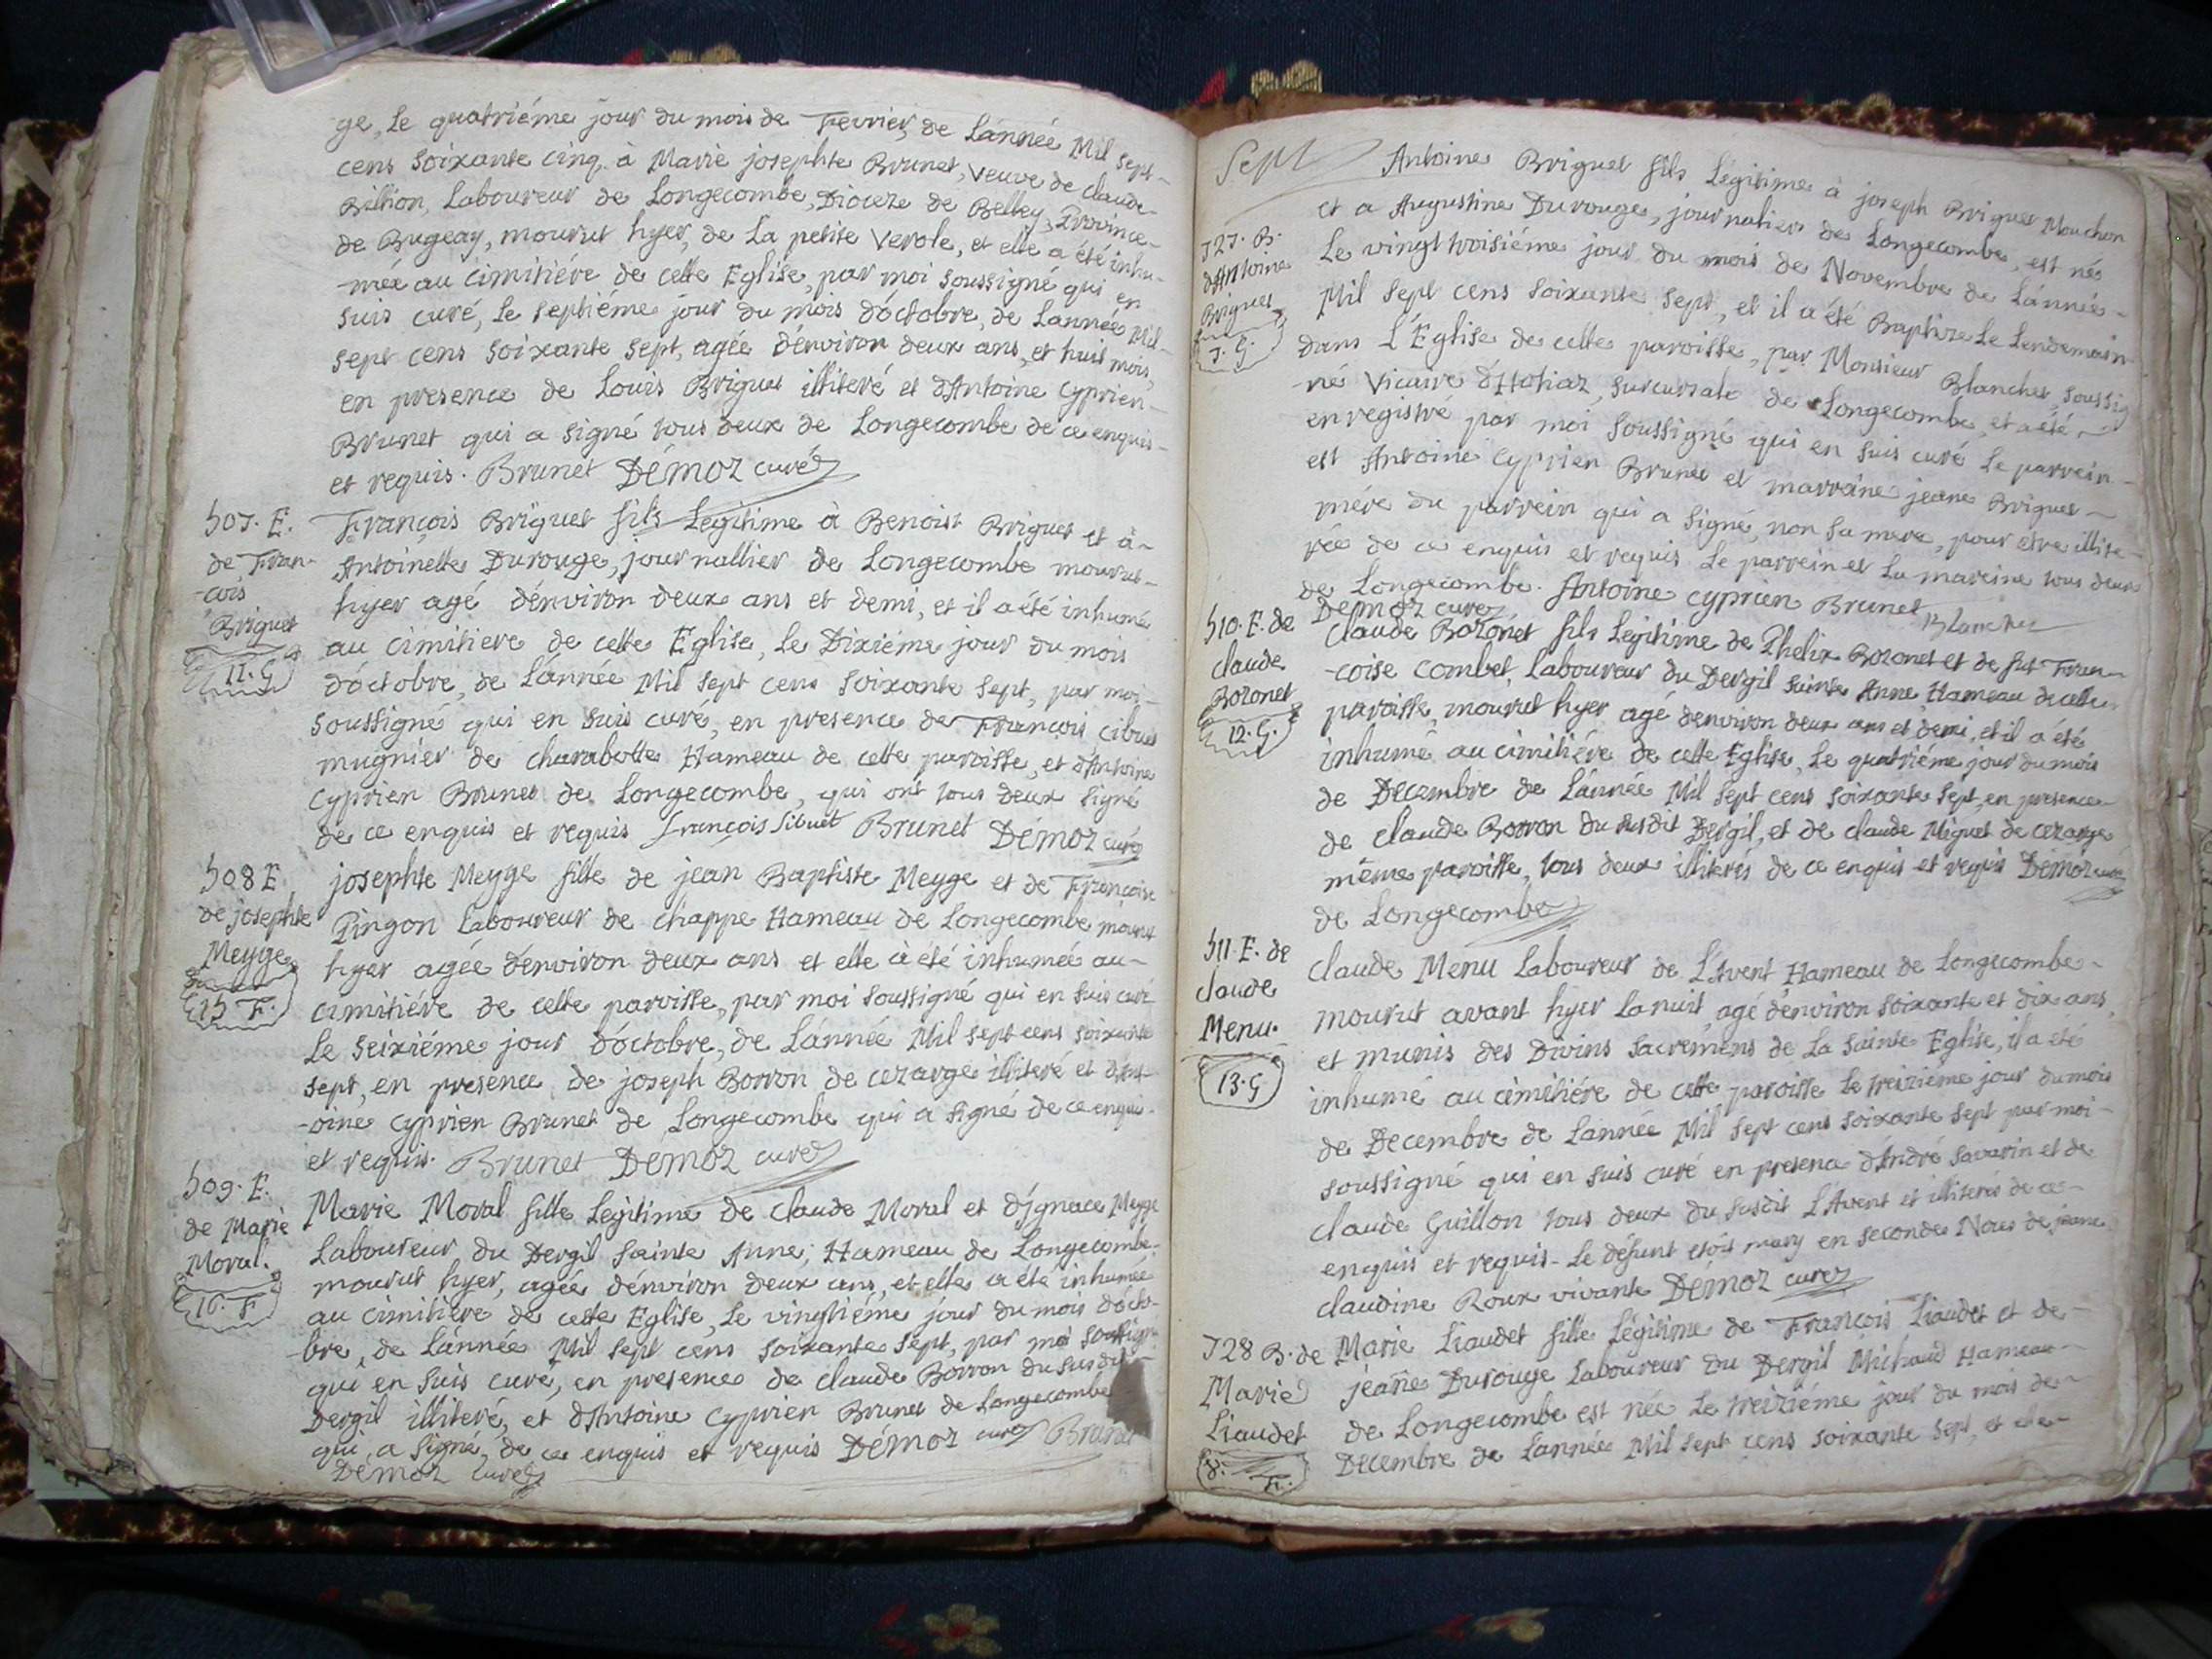 ge, Le quatriéme jour du mois de Fevrier, de Lánnée Mil sept-
cens soixante cinq, à Marie josephte Brunet, veuve de claude-
Billion, Laboureur de Longecombe, Dioceze de Belley, Province-
de Bugeay, mourut hyer, de La petite Verole, et elle a été inhu-
-mée au cimitiére de cette Eglise, par moi soussigné qui en
suis curé, Le septiéme jour du mois dóctobre, de Lannée Mil-
sept cens soixante sept, agée dénviron deux ans, et huit mois,
en presence de Louis Briguet illiteré et dAntoine Cyprien-
Brunet qui a signé tous deux de Longecombe de ce enquis-
et requis. Brunet Démoz curé
507. E.
de Fran-
-çois
Briguet
11. G
François Briguet fils Legitime à Benoist Briguet et à-
Antoinette Durouge, journallier de Longecombe mourut-
hyer agé dénviron deux ans et demi, et il a été inhumé
au cimitiere de cette Eglise, Le Dixiéme jour du mois
dóctobre, de Lánnée Mil sept cens soixante sept, par moi-
soussigné qui en suis curé, en presence de François Cibuet
mugnier de charabotte Hameau de cette paroisse, et dAntoine
Cyprien Brunet de Longecombe, qui ont tous deux signé
de ce enquis et requis françois Sibuet Brunet Démoz curé
508 E
de josephte
Meyge
15 F.
josephte Meyge fille de jean Baptiste Meyge et de Françoise
Pingon Laboureur de chappe Hameau de Longecombe mourut
hyer agée dénviron deux ans et elle a été inhumée au-
cimitiére de cette paroisse, par moi soussigné qui en suis curé
Le seixiéme jour dóctobre, de Lánnée Mil sept cens soixante
sept, en presence de joseph Borron de cezarge illiteré et dAnt-
-oine Cyprien Brunet de Longecombe qui a signé de ce enquis-
et requis. Brunet Démoz curé
509. E.
de Marie
Moral.
16. F
Marie Moral fille Légitime de claude Moral et dIgnace Meyge
Laboureur, du Dergil sainte Anne, Hameau de Longecombe-
mourut hyer, agée dénviron deux ans, et elle a été inhumée
au cimitiere de cette Eglise, Le vingtiéme jour du mois dócto-
-bre, de Lánnée Mil sept cens soixante sept, par moi soussigné
qui en suis curé, en presence de claude Borron du susdit-
Dergil illiteré, et dAntoine Cyprien Brunet de Longecombe
qui a signé, de ce enquis et requis Démoz curé Brunet
Démoz curé
Sept
727. B.
dAntoine
Briguet
7. G.
Antoine Briguet fils Légitime à joseph Briguet Mouchon
et a Augustine Durouge, journalier de Longecombe, est né
Le vingt troisiéme jour du mois de Novembre de Lánnée-
Mil sept cens soixante sept, et il a été Baptize Le Lendemain
dans L'Eglise de cette paroisse, par Monsieur Blanchet, soussig
-né Vicaire d'Hotiaz, surcursale de Longecombe, et a été-
enregistré par moi soussigné qui en suis curé Le parrein-
est Antoine Cyprien Brunet et marraine jeane Briguet-
mére du parrein qui a signé, non sa mere, pour etre illite-
rée de ce enquis et requis Le parrein et La mareine tous deux
de Longecombe. Antoine Cyprien Brunet
Démoz curé Blanchet
510. E. de
claude
Bozonet
12. G.
Claude Bozonet fils Legitime de Phelix Bozonet et de fut Fran-
-çoise Combet, Laboureur du Dergil sainte Anne Hameau de cette
paroisse, mourut hyer agé dénviron deux ans et demi, et il a été
inhumé au cimitiére de cette Eglise, Le quatriéme jour du mois
de Decembre de Lánnée Mil sept cens soixante sept, en presence-
de claude Borron du susdit Dergil, et de claude Miguet de cezarge
même paroisse, tous deux illiterés de ce enquis et requis Démoz curé
de Longecombe
511. E. de
claude
Menu.
13. G
Claude Menu Laboureur de L'Avent Hameau de Longecombe-
mourut avant hyer La nuit, agé dénviron soixante et dix ans,
et munis des Divins sacrémens de La sainte Eglise, il a été
inhumé au cimétiére de cette paroisse Le treiziéme jour du mois
de Decembre de Lannée Mil sept cens soixante sept par moi-
soussigné qui en suis curé en presence dAndré Savarin et de
Claude Guillon tous deux du susdit L'Avent et illiterés de ce-
enquis et requis- Le défunt etoit mary en secondes Noces de jeane
claudine Roux vivante Démoz curé
728 B. de
Marie
Liaudet
8. F.
Marie Liaudet fille Légitime de François Liaudet et de-
jeane Durouge Laboureur du Dergil Michaud Hameau-
de Longecombe est née Le treiziéme jour du mois de-
Decembre de Lannée Mil sept cens soixante sept, et ele-